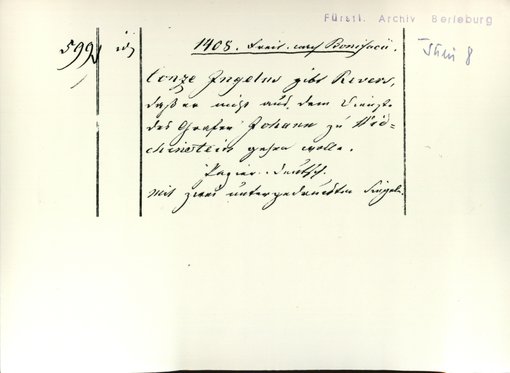 Fürstl. Archiv Berleburg
1408. Freit. nach Bonifacii.
599
Contze Ingelus gibt Revers,
daß er nicht aus dem Dienste
des Grafen Johann zu Wid=
chenstein gehen wolle.
Papier. Deutsch.
Mit zwei untergedruckten Siegeln.